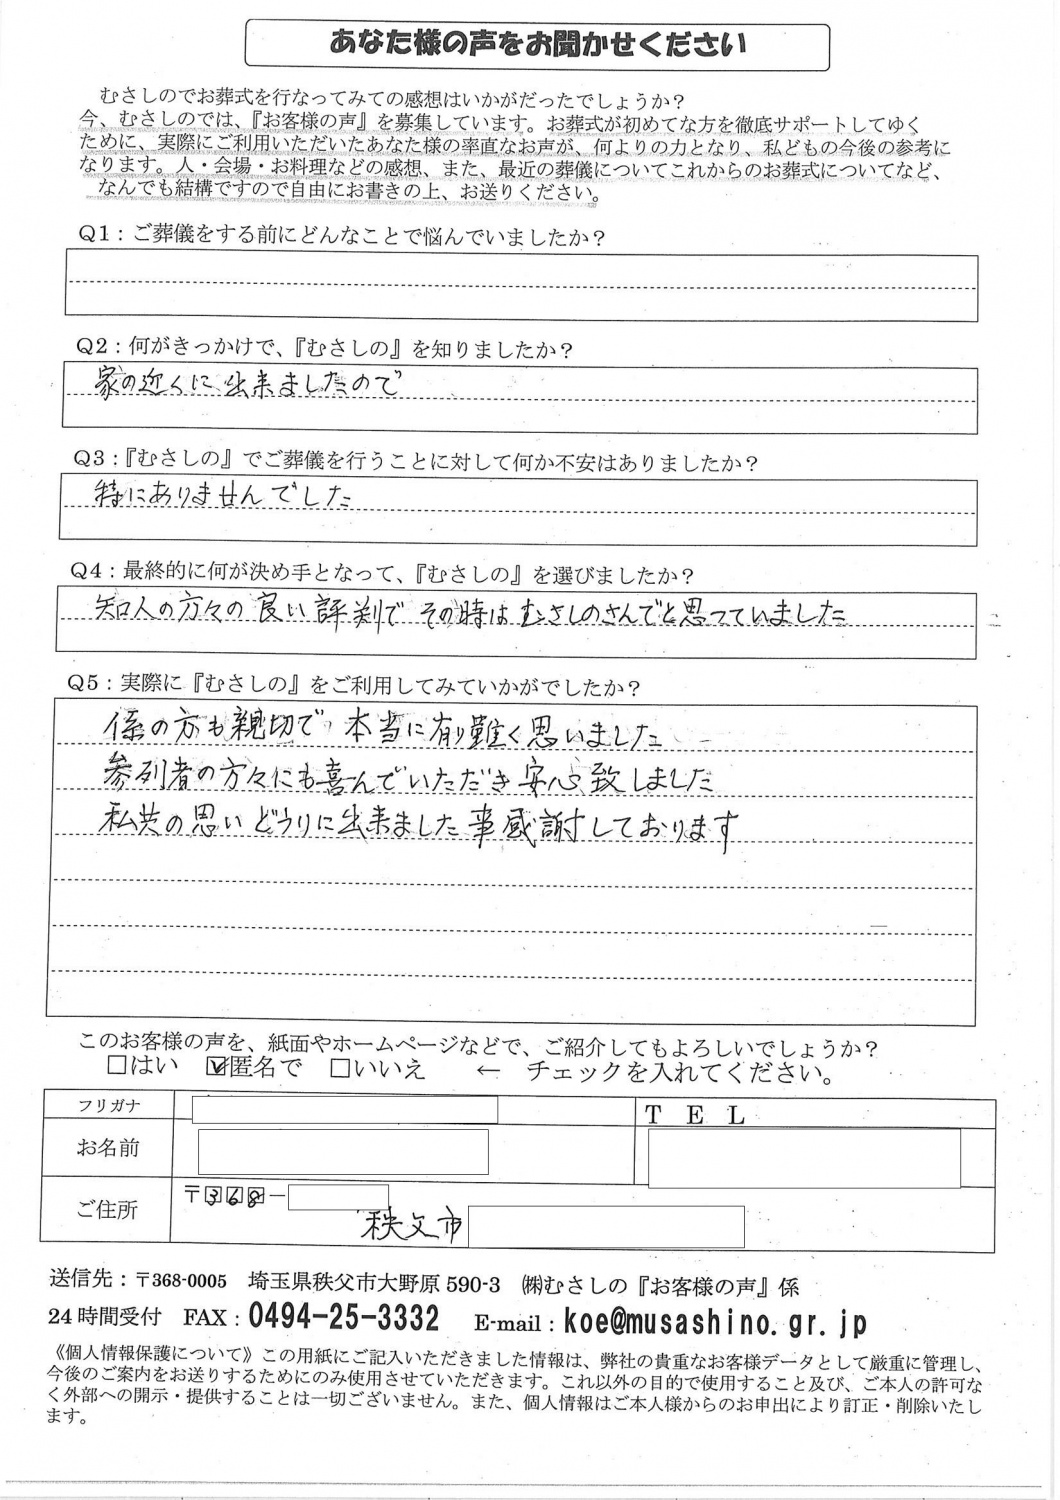 あなた様の声をお聞かせください
むさしのでお葬式を行なってみての感想はいかがだったでしょうか？
今、むさしのでは、『お客様の声』を募集しています。お葬式が初めてな方を徹底サポートしてゆく
ために、実際にご利用いただいたあなた様の率直なお声が、何よりの力となり、私どもの今後の参考に
なります。人・会場・お料理などの感想、また、最近の葬儀についてこれからのお葬式についてなど、
なんでも結構ですので自由にお書きの上、お送りください。
Q1：ご葬儀をする前にどんなことで悩んでいましたか？
Q2：何がきっかけで、『むさしの』を知りましたか？
家の近くに出来ましたので
Q3：『むさしの』でご葬儀を行うことに対して何か不安はありましたか？
特にありませんでした
Q4：最終的に何が決め手となって、『むさしの』を選びましたか？
知人の方々の良い評判で その時はむさしのさんでと思っていました
Q5：実際に『むさしの』をご利用してみていかがでしたか？
係の方も親切で 本当に有り難く思いました
参列者の方々にも喜んでいただき安心致しました
私共の思いどうりに出来ました事感謝しております
このお客様の声を、紙面やホームページなどで、ご紹介してもよろしいでしょうか？
□はい ☑匿名で □いいえ ← チェックを入れてください。
フリガナ
TEL
お名前
ご住所
〒368－
秩父市
送信先：〒368-0005 埼玉県秩父市大野原590-3 ㈱むさしの『お客様の声』係
24時間受付 FAX：0494-25-3332 E-mail：koe@musashino.gr.jp
《個人情報保護について》この用紙にご記入いただきました情報は、弊社の貴重なお客様データとして厳重に管理し、
今後のご案内をお送りするためにのみ使用させていただきます。これ以外の目的で使用すること及び、ご本人の許可な
く外部への開示・提供することは一切ございません。また、個人情報はご本人様からのお申出により訂正・削除いたし
ます。